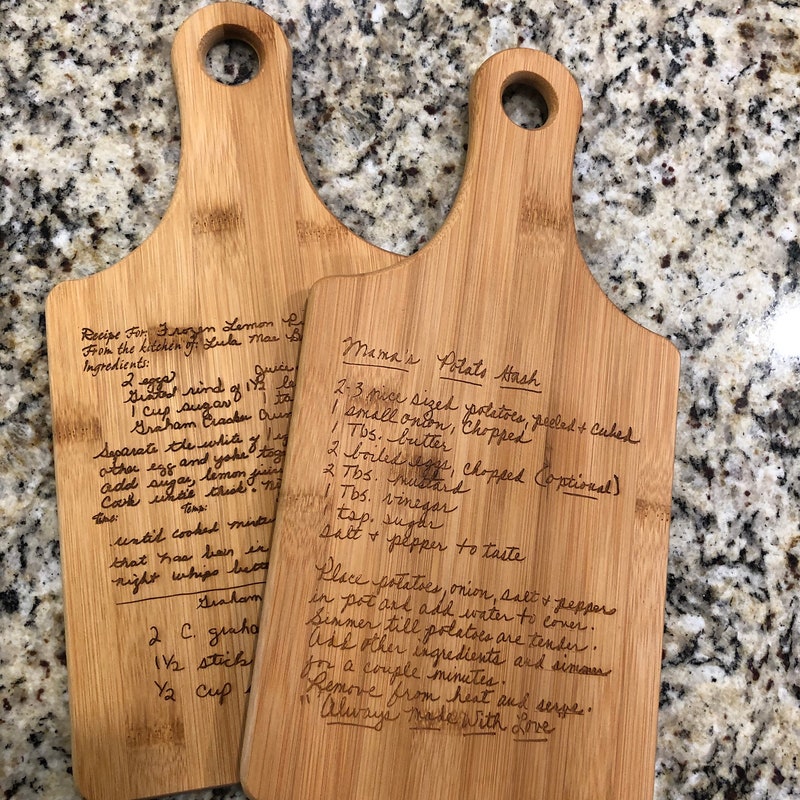 Recipe For: Frozen Lemon
From the kitchen of: Lula Mae
Ingredients:
2 eggs Juice
Grated rind of 1½
1 cup sugar
Graham Cracker
Separate the white of 1
other egg and yoke
add sugar, lemon juice
Cook until thick.
Time: Temp:
until cooked
that has been in
night whips
Graham
2 C.
1½ stick
½ cup
Mama's Potato Hash
2-3 nice sized potatoes, peeled + cubed
1 small onion, chopped
1 Tbs. butter
2 boiled eggs, chopped (optional)
2 Tbs. mustard
1 Tbs. vinegar
1 tsp. sugar
salt + pepper to taste
Place potatoes, onion, salt + pepper
in pot and add water to cover.
Simmer till potatoes are tender.
Add other ingredients and simmer
for a couple minutes.
Remove from heat and serve.
"Always Made With Love"